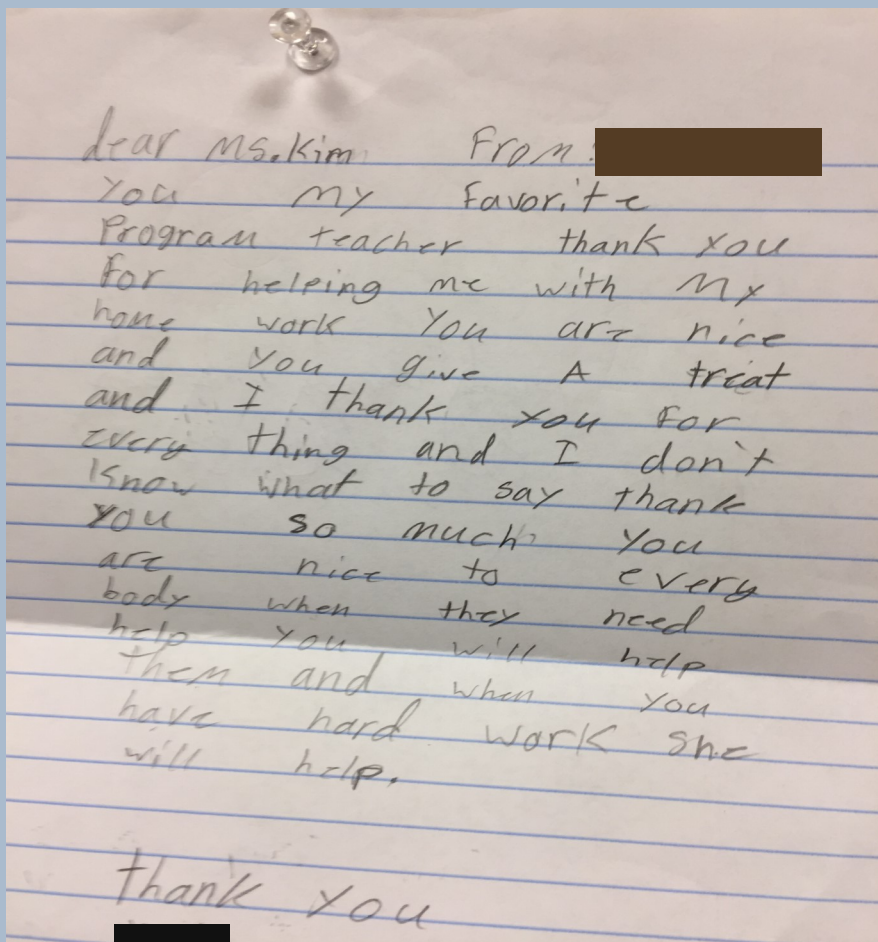 dear Ms.Kim From:
You My Favorite
Program teacher thank you
For helping me with My
home work You are nice
and you give A treat
and I thank you for
every thing and I don't
Know what to say thank
you so much you
are nice to every
body when they need
help you will help
them and when you
have hard work she
will help.
thank you